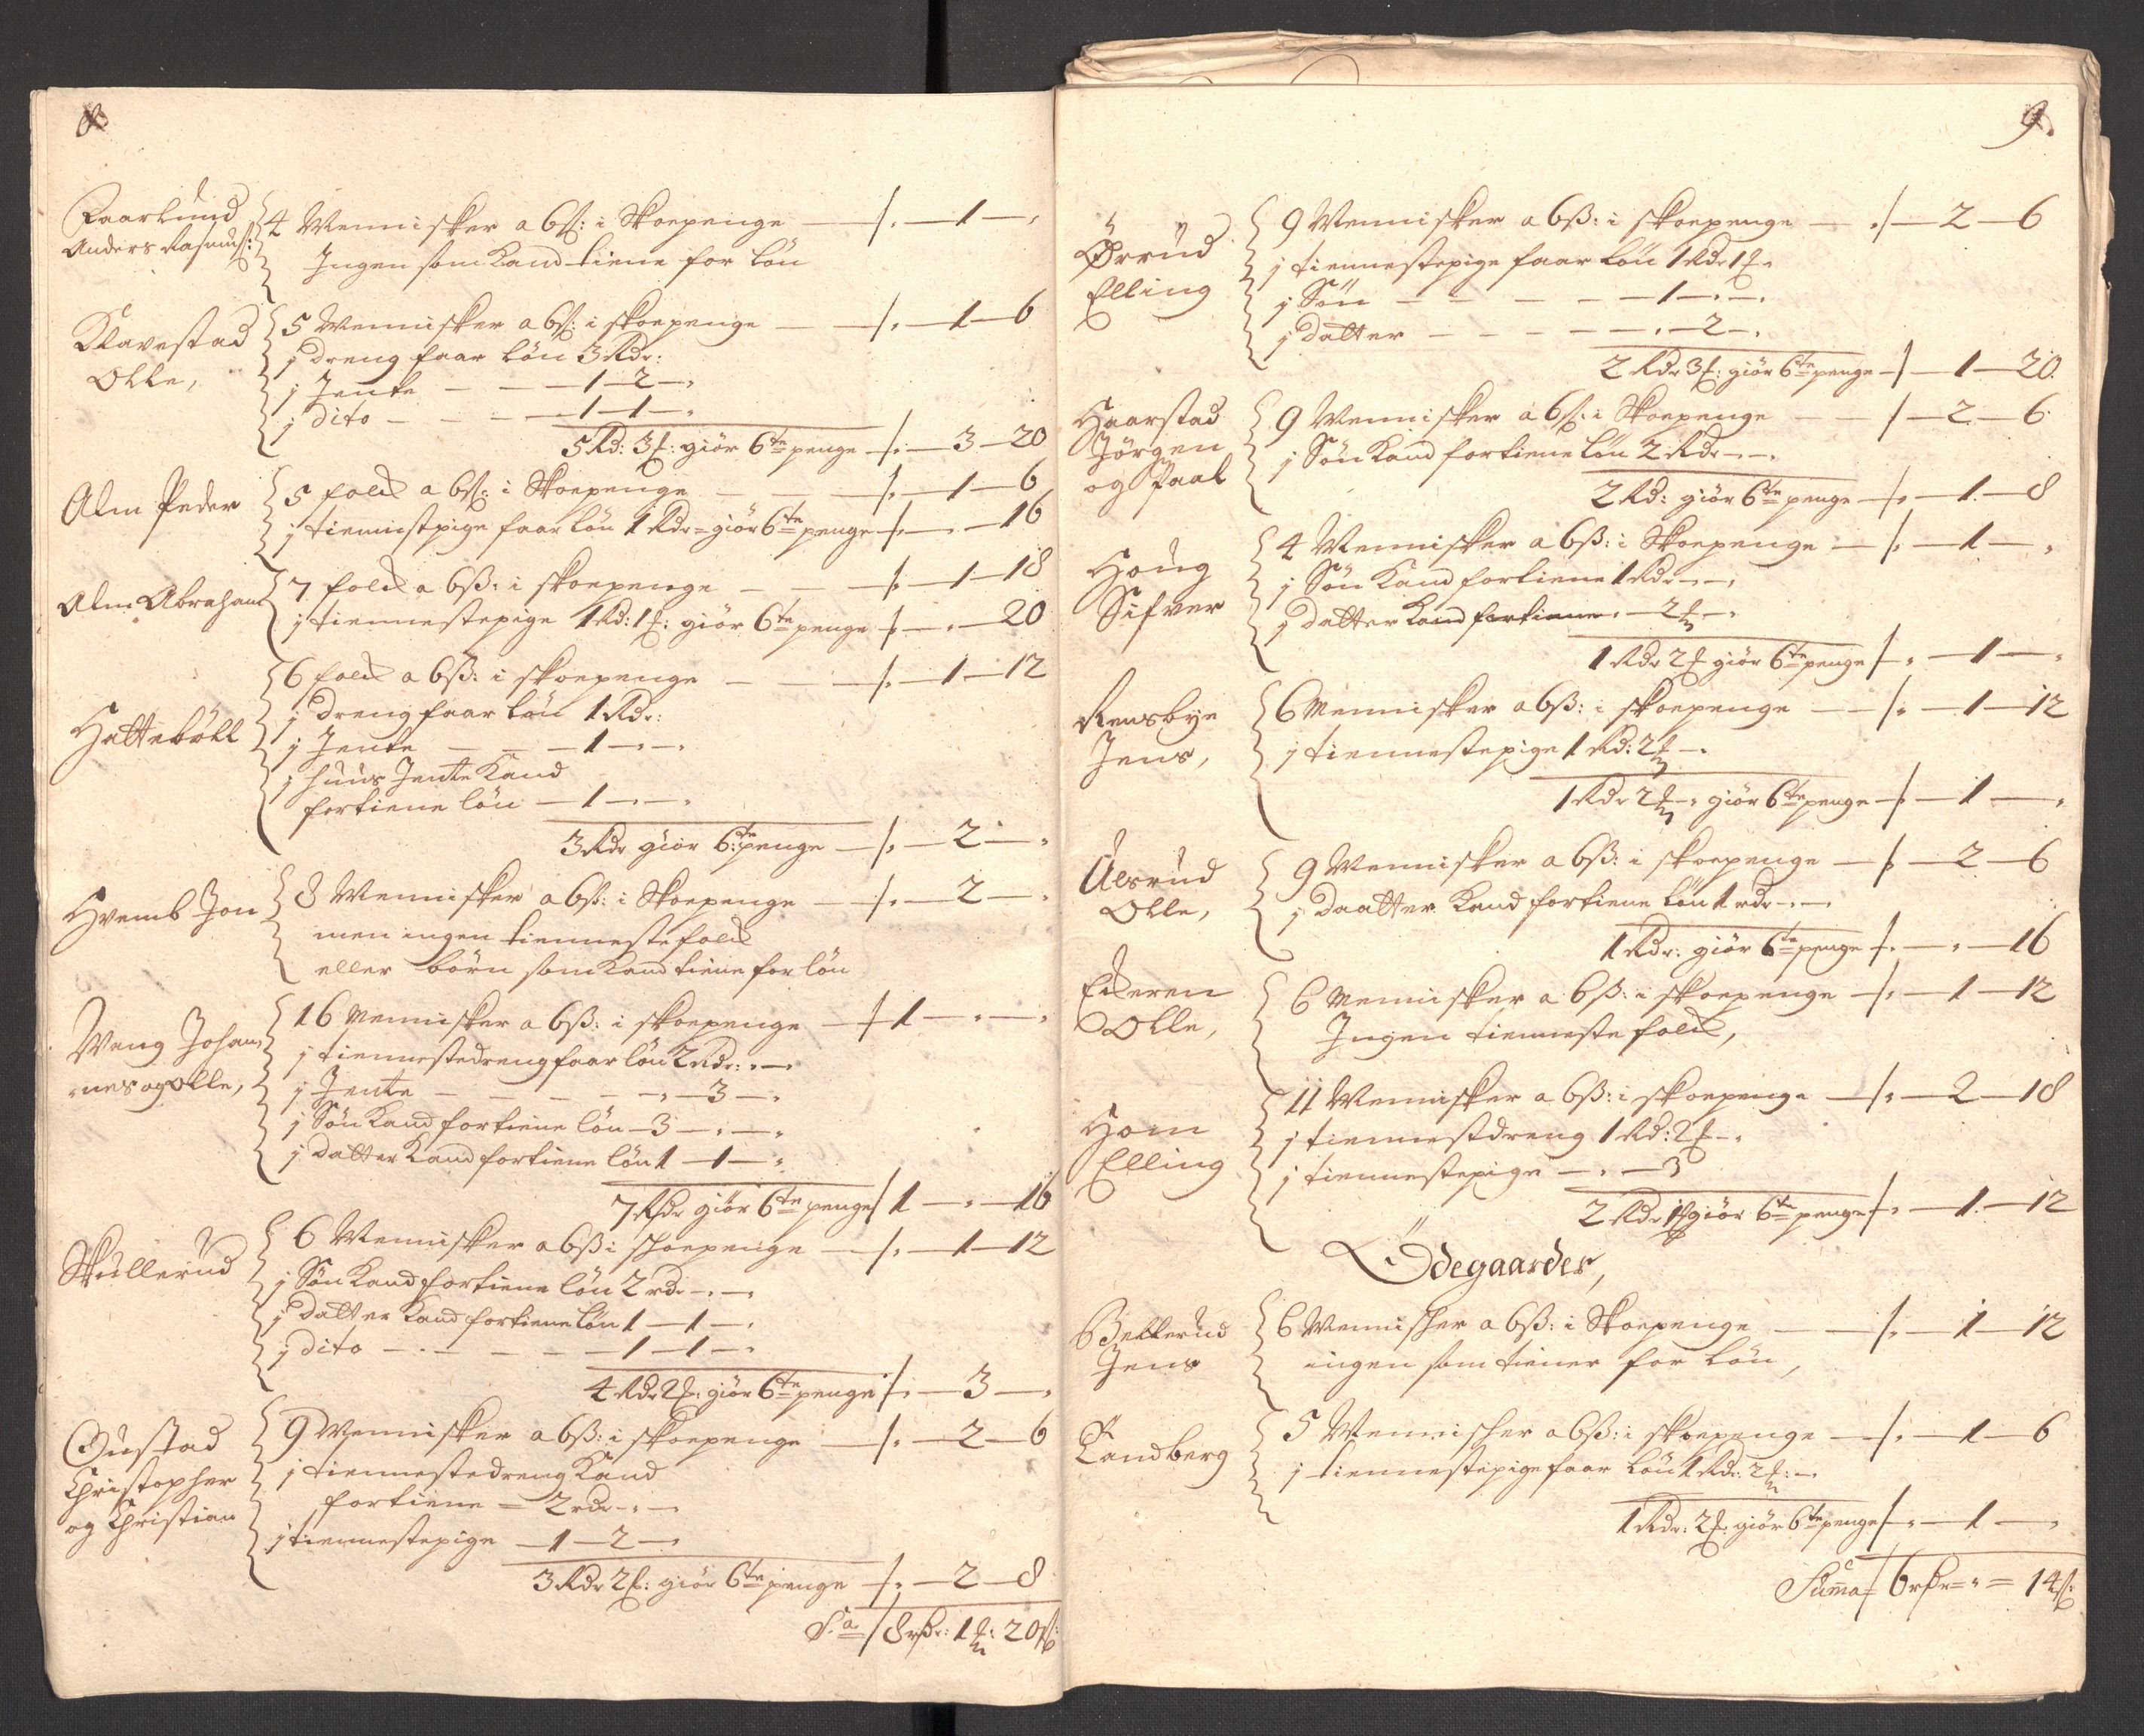 8.
Raarlund
Anders Rasmuß:
4 Mennisker a 6ß: i Skoepenge — /: — 1 — „
Ingen som Kand tiene for løn
Klavestad
Olle,
5 Mennisker a 6ß: i skoepenge — /: — 1 — 6
j dreng faar løn 3 Rdr:
j Jente — — — 1 — 2 — „
j dito — — — 1 — 1 — „
5 Rd: 3 f: giör 6te penge — /: — 3 — 20
Alm Peder
5 folck a 6ß: i Skoepenge — /: — 1 — 6
j tiennistpige faar løn 1 Rdr = giör 6te penge — /: — „ — 16
Alm Abraham
7 folck a 6ß: i skoepenge — /: — 1 — 18
j tiennestepige 1 Rd: 1 f: giör 6te penge /: — „ — 20
Hattebøll
6 folck a 6ß: i skoepenge — /: — 1 — 12
j dreng faar løn 1 Rdr:
j Jente — — — 1 — „ — „
j huus Jente Kand
fortiene løn — 1 — „ — „
3 Rdr giör 6te penge — /: — 2 — „
Hvemb Jon
8 Mennisker a 6ß: i Skoepenge — /: — 2 — „
men ingen tienneste folck
eller børn som Kand tiene for løn
Weng Johan-
nes og Olle,
16 Mennisker a 6ß: i skoepenge — / 1 — „ — „
j tiennestedreng faar løn 2 Rdr: „ —
j Jente — — — — „ — 3 — „
j Søn Kand fortiene løn — 3 — „ — „
j datter Kand fortiene løn 1 — 1 — „
7 Rdr giör 6te penge / 1 — „ — 16
Skullerud
6 Mennisker a 6ß i skoepenge — /: — 1 — 12
j Søn Kand fortiene løn 2 rd: — „ —
j datter Kand fortiene løn 1 — 1 — „
j dito — — — — — 1 — 1 — „
4 Rdr 2 f: giör 6te penge /: — 3 — „
Gustad
Christopher
og Christian
9 Mennisker a 6ß: i skoepenge — /: — 2 — 6
j tiennestedreng Kand
fortiene — 2 rdr — „ —
j tiennestepige — 1 — 2 — „
3 Rdr 2 f: giör 6te penge — /: — 2 — 8
S:a / 8 rdr: 1 f: 20 ß:
9.
Ørrud
Elling
9 Mennisker a 6ß: i skoepenge — „/ — 2 — 6
j tiennestepige faar løn 1 Rdr 1 f „
j Søn — — — — 1 — „ — „
j datter — — — — „ — 2 — „
2 Rdr 3 f: giör 6te penge — / — 1 — 20.
Haarstad
Jörgen
og Paal
9 Mennisker a 6ß: i Skoepenge — / — 2 — 6
j Søn Kand fortiene løn 2 Rdr — „ — „
2 Rd: giör 6te penge — /: — 1 — 8
Houg
Sifver
4 Mennisker a 6ß: i Skoepenge — /: — 1 — „
j Søn Kand fortiene 1 Rdr — „ — „
j datter Kand fortiene „ — 2 f — „
1 Rdr 2 f giör 6te penge / „ — 1 — „
Rensbye
Jens,
6 Mennisker a 6ß: i skoepenge — /: — 1 — 12
j tiennestepige 1 Rd: 2 f — „
1 Rdr 2 f — „ giör 6te penge — /: — 1 — „
Ulsrud
Olle,
9 Mennisker a 6ß: i skoepenge — /: — 2 — 6
j daatter Kand fortiene løn 1 rdr — „ —
1 Rdr: giör 6te penge /: — „ — 16
Ekeren
Olle,
6 Mennisker a 6ß: i skoepenge — /: — 1 — 12
Ingen tienneste folck,
Hom
Elling
11 Mennisker a 6ß: i skoepenge — /: — 2 — 18
j tiennestdreng 1 Rd: 2 f — „
j tiennestepige — „ — 3
2 Rdr 1 f giör 6te penge /: — 1 — 12
Ödegaarder,
Bellerud
Jens
6 Mennisker a 6ß: i Skoepenge — /: — 1 — 12
ingen som tiener for løn,
Landberg
5 Mennisker a 6ß: i skoepenge — /: — 1 — 6
j tiennestepige faar løn 1 Rdr: 2 f: —
1 Rdr: 2 f: giör 6te penge /: — 1 — „
Summa / 6 rdr = „ = 14 ß: